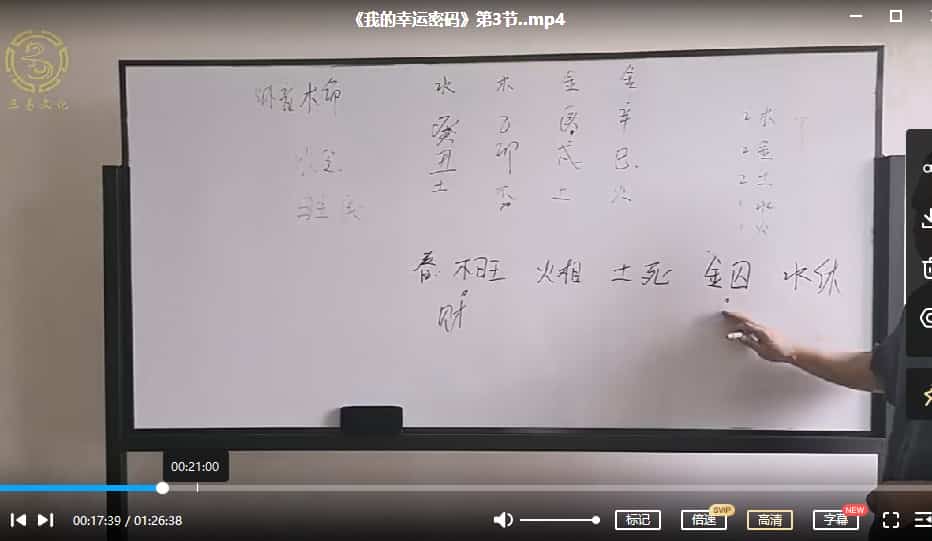 《我的幸运密码》第3节..mp4
三易文化
水 木 金 金
木命
癸 乙 庚 辛
丑 卯 戌 巳
土 木 土 火
2木
2金
2土
1水
1火
春 木旺 火相 土死 金囚 水休
财
00:21:00
00:17:39 / 01:26:38
标记
倍速
SVIP
高清
字幕
NEW